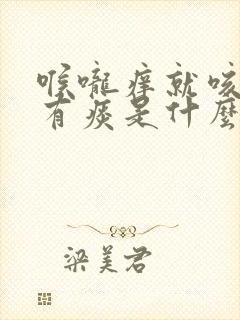 喉嚨痒就咳
有痰是什麼
梁美君